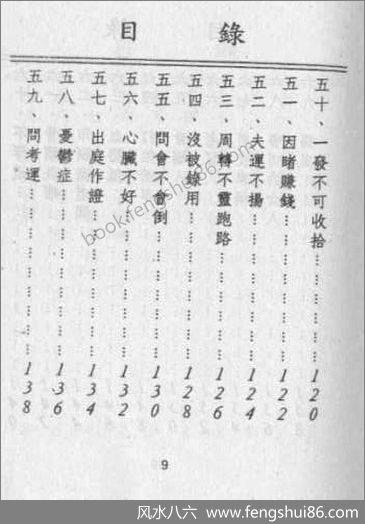 目錄
五十、一發不可收拾……………120
五一、因賭賺錢……………122
五二、夫運不揚……………124
五三、周轉不靈跑路……………126
五四、沒被錄用……………128
五五、問會不會倒……………130
五六、心臟不好……………132
五七、出庭作證……………134
五八、憂鬱症……………136
五九、問考運……………138
9
book.fengshui86.com
风水八六 www.fengshui86.com